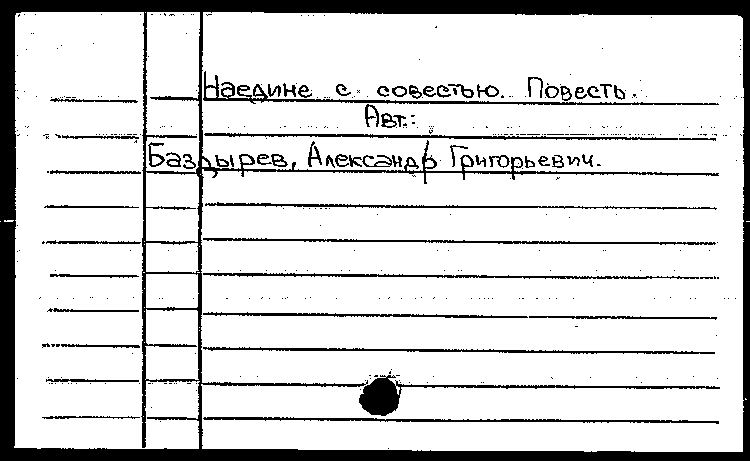 Наедине с совестью. Повесть.
Авт.:
Баздырев, Александр Григорьевич.